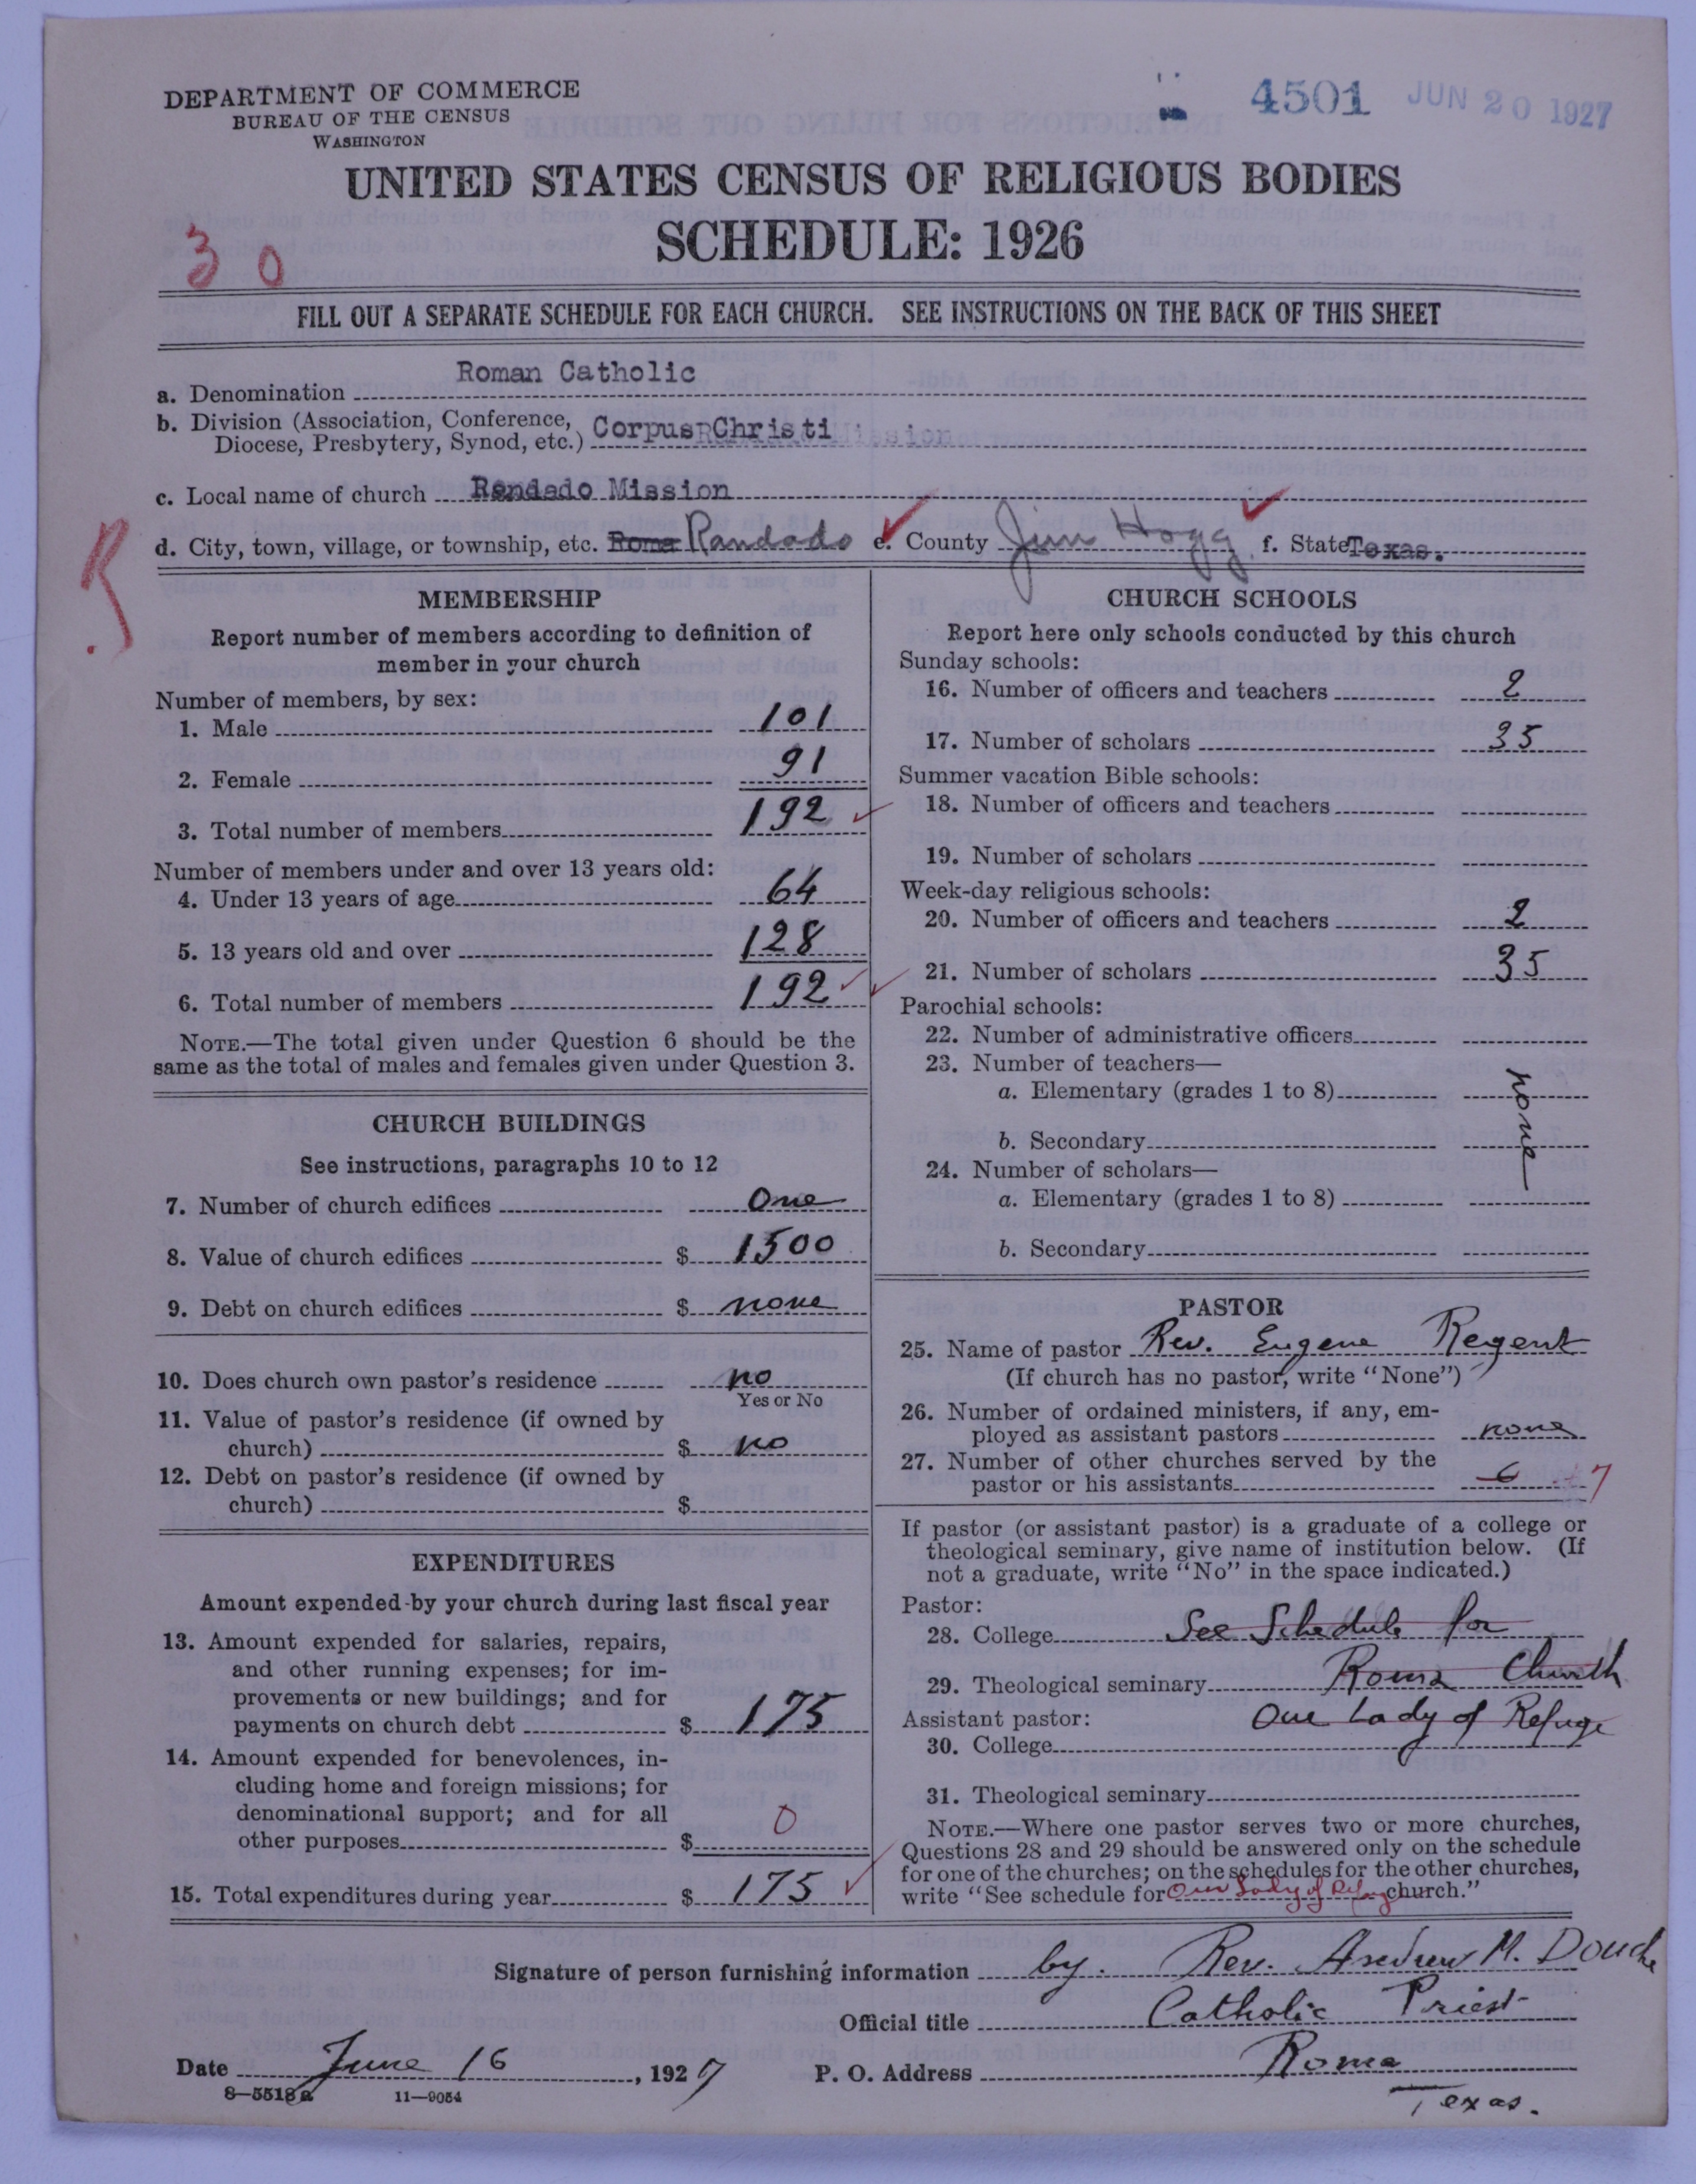 DEPARTMENT OF COMMERCE
BUREAU OF THE CENSUS
WASHINGTON
4501 JUN 20 1927
UNITED STATES CENSUS OF RELIGIOUS BODIES
SCHEDULE: 1926
30
FILL OUT A SEPARATE SCHEDULE FOR EACH CHURCH. SEE INSTRUCTIONS ON THE BACK OF THIS SHEET
a. Denomination Roman Catholic
b. Division (Association, Conference, Diocese, Presbytery, Synod, etc.) Corpus Christi
c. Local name of church Randado Mission
d. City, town, village, or township, etc. Roma Randado e. County Jim Hogg f. State Texas.
MEMBERSHIP
Report number of members according to definition of
member in your church
Number of members, by sex:
1. Male 101
2. Female 91
3. Total number of members 192
Number of members under and over 13 years old:
4. Under 13 years of age 64
5. 13 years old and over 128
6. Total number of members 192
NOTE.—The total given under Question 6 should be the
same as the total of males and females given under Question 3.
CHURCH BUILDINGS
See instructions, paragraphs 10 to 12
7. Number of church edifices One
8. Value of church edifices $ 1500
9. Debt on church edifices $ none
10. Does church own pastor's residence no
Yes or No
11. Value of pastor's residence (if owned by
church) $ no
12. Debt on pastor's residence (if owned by
church) $
EXPENDITURES
Amount expended by your church during last fiscal year
13. Amount expended for salaries, repairs,
and other running expenses; for im-
provements or new buildings; and for
payments on church debt $ 175
14. Amount expended for benevolences, in-
cluding home and foreign missions; for
denominational support; and for all
other purposes $ 0
15. Total expenditures during year $ 175
CHURCH SCHOOLS
Report here only schools conducted by this church
Sunday schools:
16. Number of officers and teachers 2
17. Number of scholars 35
Summer vacation Bible schools:
18. Number of officers and teachers
19. Number of scholars
Week-day religious schools:
20. Number of officers and teachers 2
21. Number of scholars 35
Parochial schools:
22. Number of administrative officers
23. Number of teachers—
a. Elementary (grades 1 to 8)
none
b. Secondary
24. Number of scholars—
a. Elementary (grades 1 to 8)
b. Secondary
PASTOR
25. Name of pastor Rev. Eugene Regent
(If church has no pastor, write "None")
26. Number of ordained ministers, if any, em-
ployed as assistant pastors none
27. Number of other churches served by the
pastor or his assistants 6 7
If pastor (or assistant pastor) is a graduate of a college or
theological seminary, give name of institution below. (If
not a graduate, write "No" in the space indicated.)
Pastor:
28. College See Schedule for
29. Theological seminary Roma Church
Assistant pastor: Our Lady of Refuge
30. College
31. Theological seminary
NOTE.—Where one pastor serves two or more churches,
Questions 28 and 29 should be answered only on the schedule
for one of the churches; on the schedules for the other churches,
write "See schedule for Our Lady of Refuge church."
Signature of person furnishing information by. Rev. Andrew M. Douche
Official title Catholic Priest
Date June 16, 1927 P. O. Address Roma
Texas.
8—5518a 11—9054